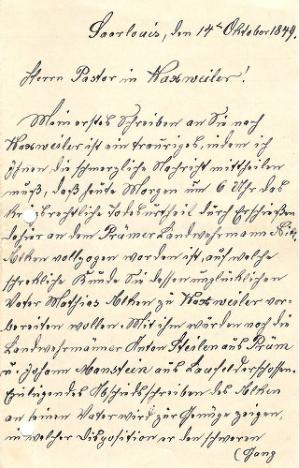 Saarlouis, den 14ten Oktober 1849.
Herrn Pastor in Waxweiler!
Mein erstes Schreiben an Sie nach
Waxweiler ist ein trauriges, indem ich
Ihnen die schmerzliche Nachricht mittheilen
muß, daß heute Morgen um 6 Uhr das
kriegsrechtliche Todesurtheil durch Erschießen
dahier an dem Prümer Landwehrmann
Alken vollzogen worden ist, auf welche
schreckliche Kunde Sie dessen unglücklichen
Vater Mathias Alken zu Waxweiler vor-
bereiten wollen. Mit ihm wurden noch die
Landwehrmänner Anton Heilen aus Prüm
u. Johann Mansteen aus erschossen.
Einliegendes Abschiedsschreiben des Alken
an seinen Vater wird zur Genüge zeigen,
in welcher Disposition er den schweren
(Gang